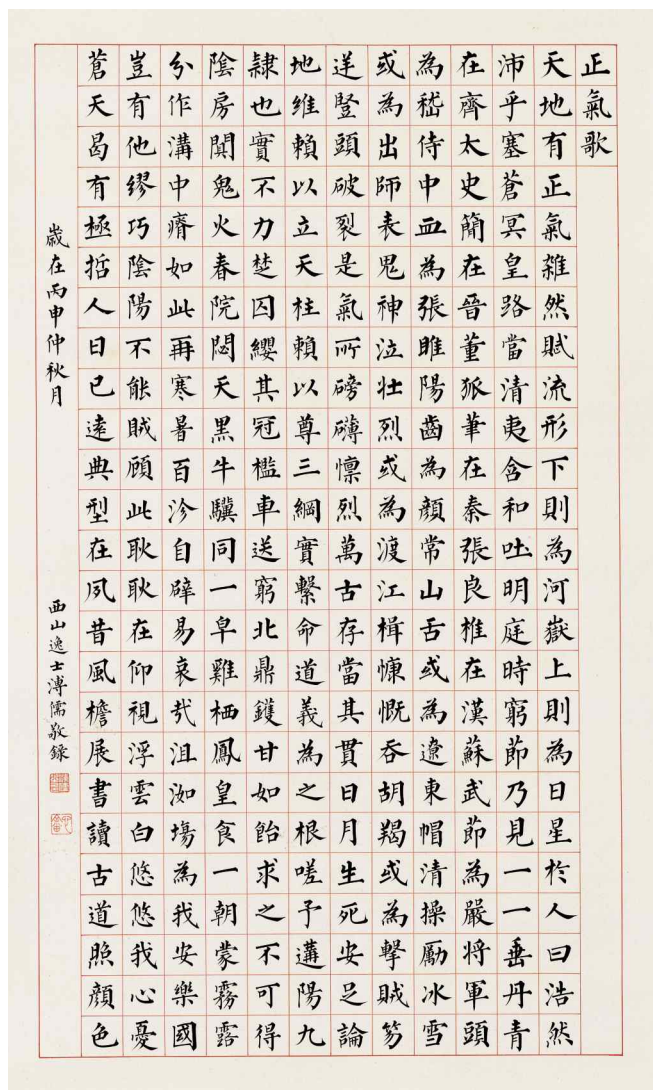 正氣歌
天地有正氣雜然賦流形下則為河嶽上則為日星於人曰浩然
沛乎塞蒼冥皇路當清夷含和吐明庭時窮節乃見一一垂丹青
在齊太史簡在晉董狐筆在秦張良椎在漢蘇武節為嚴將軍頭
為嵇侍中血為張睢陽齒為顏常山舌或為遼東帽清操勵冰雪
或為出師表鬼神泣壯烈或為渡江楫慷慨吞胡羯或為擊賊笏
逆豎頭破裂是氣所磅礴懍烈萬古存當其貫日月生死安足論
地維賴以立天柱賴以尊三綱實繫命道義為之根嗟予遘陽九
隸也實不力楚囚纓其冠檻車送窮北鼎鑊甘如飴求之不可得
陰房闃鬼火春院閟天黑牛驥同一皁雞栖鳳皇食一朝蒙霧露
分作溝中瘠如此再寒暑百沴自辟易哀哉沮洳場為我安樂國
豈有他繆巧陰陽不能賊顧此耿耿在仰視浮雲白悠悠我心憂
蒼天曷有極哲人日已遠典型在夙昔風檐展書讀古道照顏色
歲在丙申仲秋月 西山逸士溥儒敬錄